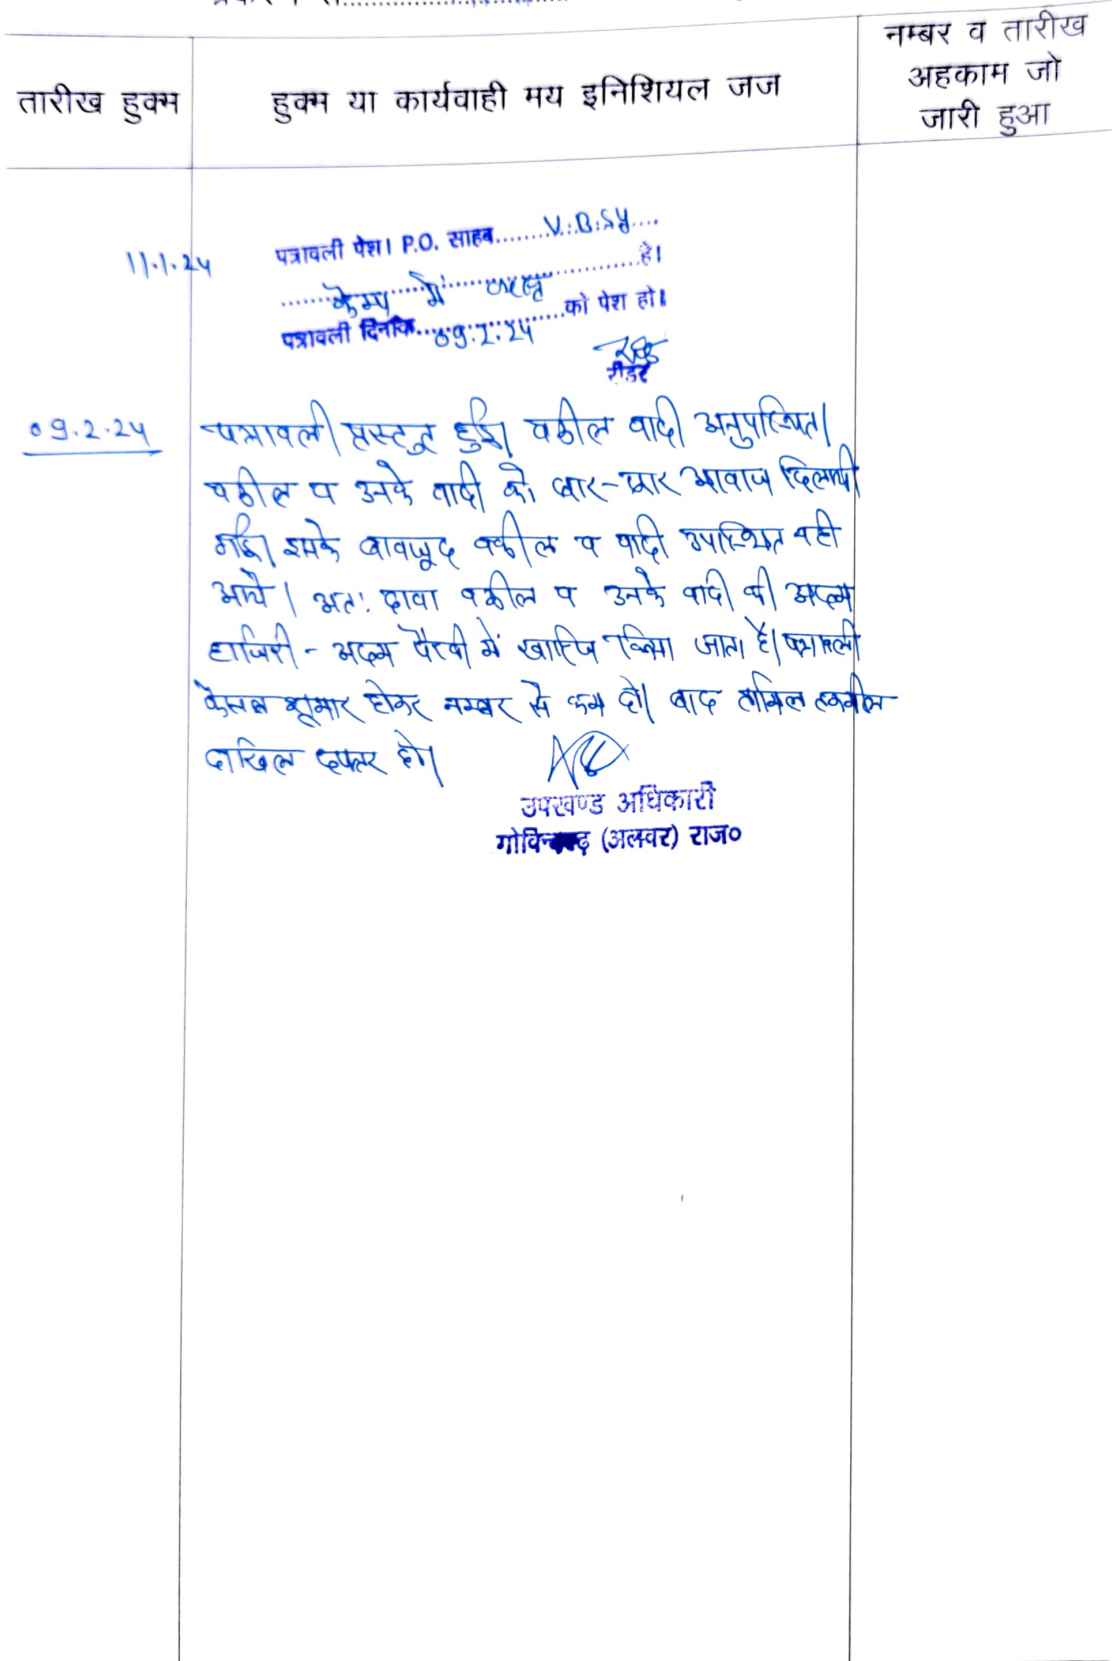 नम्बर व तारीख
अहकाम जो
जारी हुआ
तारीख हुक्म
हुक्म या कार्यवाही मय इनिशियल जज
11.1.24
पत्रावली पेश। P.O. साहब.......V.B.Sy....
कैम्प में व्यस्त है।
पत्रावली दिनांक....09.2.24......को पेश हो।
रीडर
09.2.24
पत्रावली प्रस्तुत हुई। वकील वादी अनुपस्थित।
वकील व उनके वादी को बार-बार आवाज दिलायी
गई। इसके बावजूद वकील व वादी उपस्थित नही
आये। अतः दावा वकील व उनके वादी की अदम
हाजिरी - अदम पैरवी में खारिज किया जाता है। पत्रावली
फैसल शुमार होकर नम्बर से कम हो। बाद तामिल तकमील
दाखिल दफ्तर हो।
उपखण्ड अधिकारी
गोविन्दगढ़ (अलवर) राज०